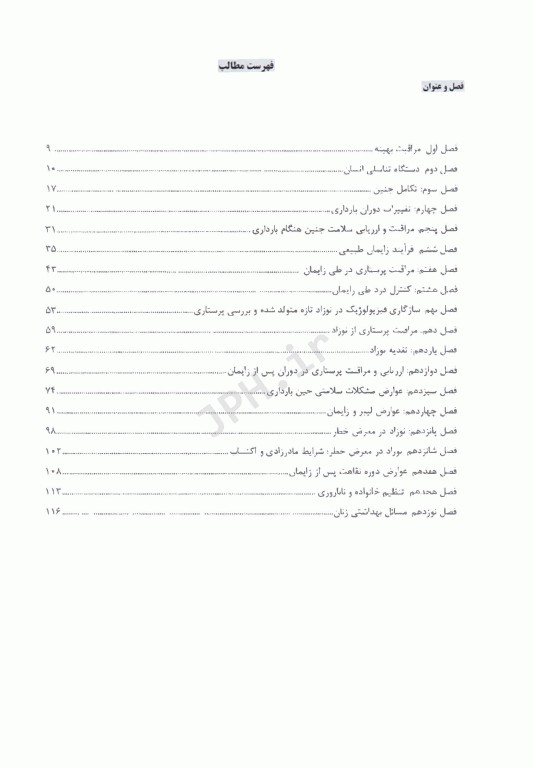 فهرست مطالب
فصل و عنوان
فصل اول مراقبت بهینه ۹
فصل دوم دستگاه تناسلی انسان ۱۰
فصل سوم: تکامل جنین ۱۷
فصل چهارم: تغییرات دوران بارداری ۲۱
فصل پنجم: مراقبت و ارزیابی سلامت جنین هنگام بارداری ۳۱
فصل ششم فرآیند زایمان طبیعی ۳۵
فصل هفتم: مراقبت پرستاری در طی زایمان ۴۳
فصل هشتم: کنترل درد طی زایمان ۵۰
فصل نهم سازگاری فیزیولوژیک در نوزاد تازه متولد شده و بررسی پرستاری ۵۳
فصل دهم: مراقبت پرستاری از نوزاد ۵۹
فصل یازدهم: تغذیه نوزاد ۶۲
فصل دوازدهم: ارزیابی و مراقبت پرستاری در دوران پس از زایمان ۶۹
فصل سیزدهم: عوارض مشکلات سلامتی حین بارداری ۷۴
فصل چهاردهم: عوارض لیبر و زایمان ۹۱
فصل پانزدهم: نوزاد در معرض خطر ۹۸
فصل شانزدهم نوزاد در معرض خطر: شرایط مادرزادی و اکتساب ۱۰۲
فصل هفدهم عوارض دوره نقاهت پس از زایمان ۱۰۸
فصل هجدهم تنظیم خانواده و ناباروری ۱۱۳
فصل نوزدهم مسائل بهداشتی زنان ۱۱۶
JPH.ir